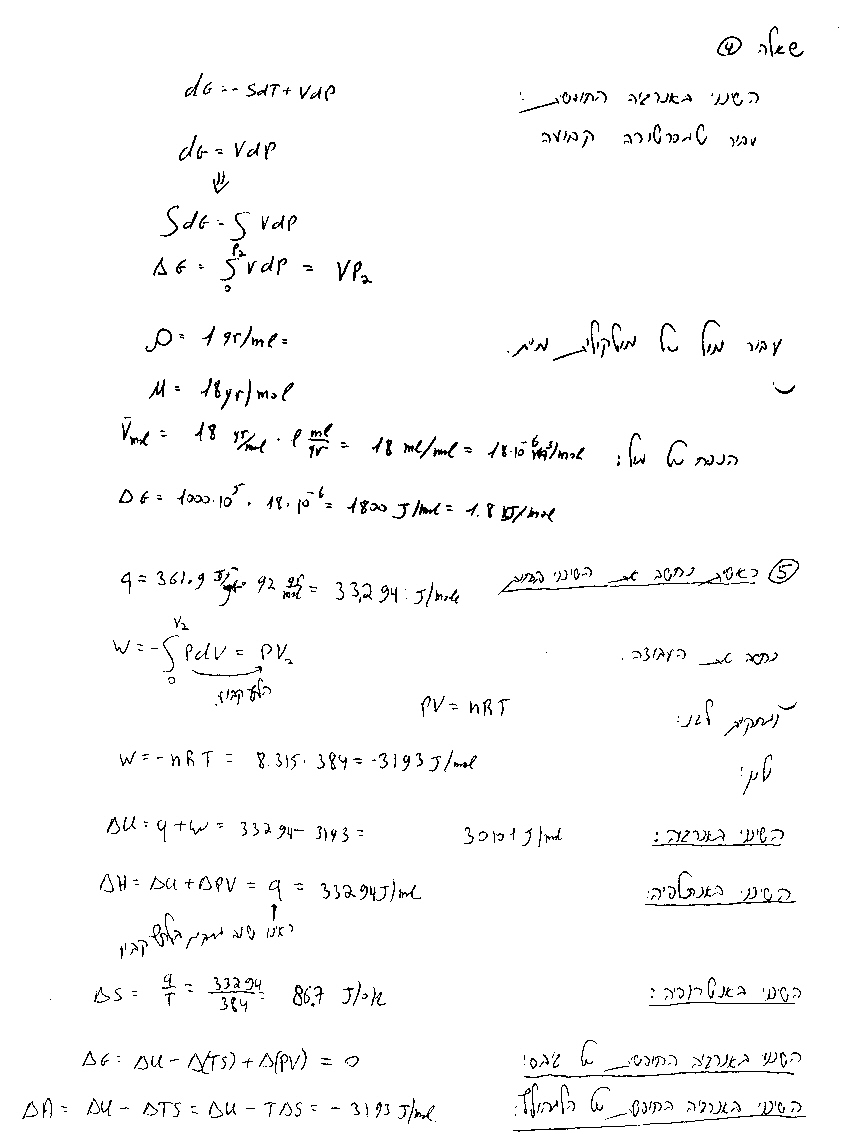 שאלה ④
השינוי באנרגיה החופשית:
dG = - SdT + VdP
עבור טמפרטורה קבועה
dG = VdP
⇓
∫dG = ∫VdP
ΔG = ∫₀^P₂ VdP = VP₂
עבור מול של מולקולות מים.
ρ = 1 gr/ml =
M = 18 gr/mol
הנפח של מול:
V̄mol = 18 gr/mol · 1 ml/gr = 18 ml/mol = 18·10⁻⁶ m³/mol
ΔG = 1000·10⁵ · 18·10⁻⁶ = 1800 J/mol = 1.8 kJ/mol
⑤ ראשית נחשב את השינוי בחום
q = 361.9 J/gr · 92 gr/mol = 33,294 J/mole
נחשב את העבודה.
W = -∫₀^V₂ PdV = PV₂
הלחץ קבוע
PV = nRT
לכן:
W = - nRT = 8.315 · 384 = -3193 J/mol
השינוי באנרגיה:
ΔU = q + W = 33294 - 3193 = 30101 J/mol
השינוי באנתלפיה:
ΔH = ΔU + ΔPV = q = 33294 J/mol
↑
השינוי באנטרופיה:
ΔS = q/T = 33294/384 = 86.7 J/°K
השינוי באנרגיה החופשית של גיבס:
ΔG = ΔU - Δ(TS) + Δ(PV) = 0
השינוי באנרגיה החופשית של הלמהולץ:
ΔA = ΔU - ΔTS = ΔU - TΔS = - 3193 J/mol